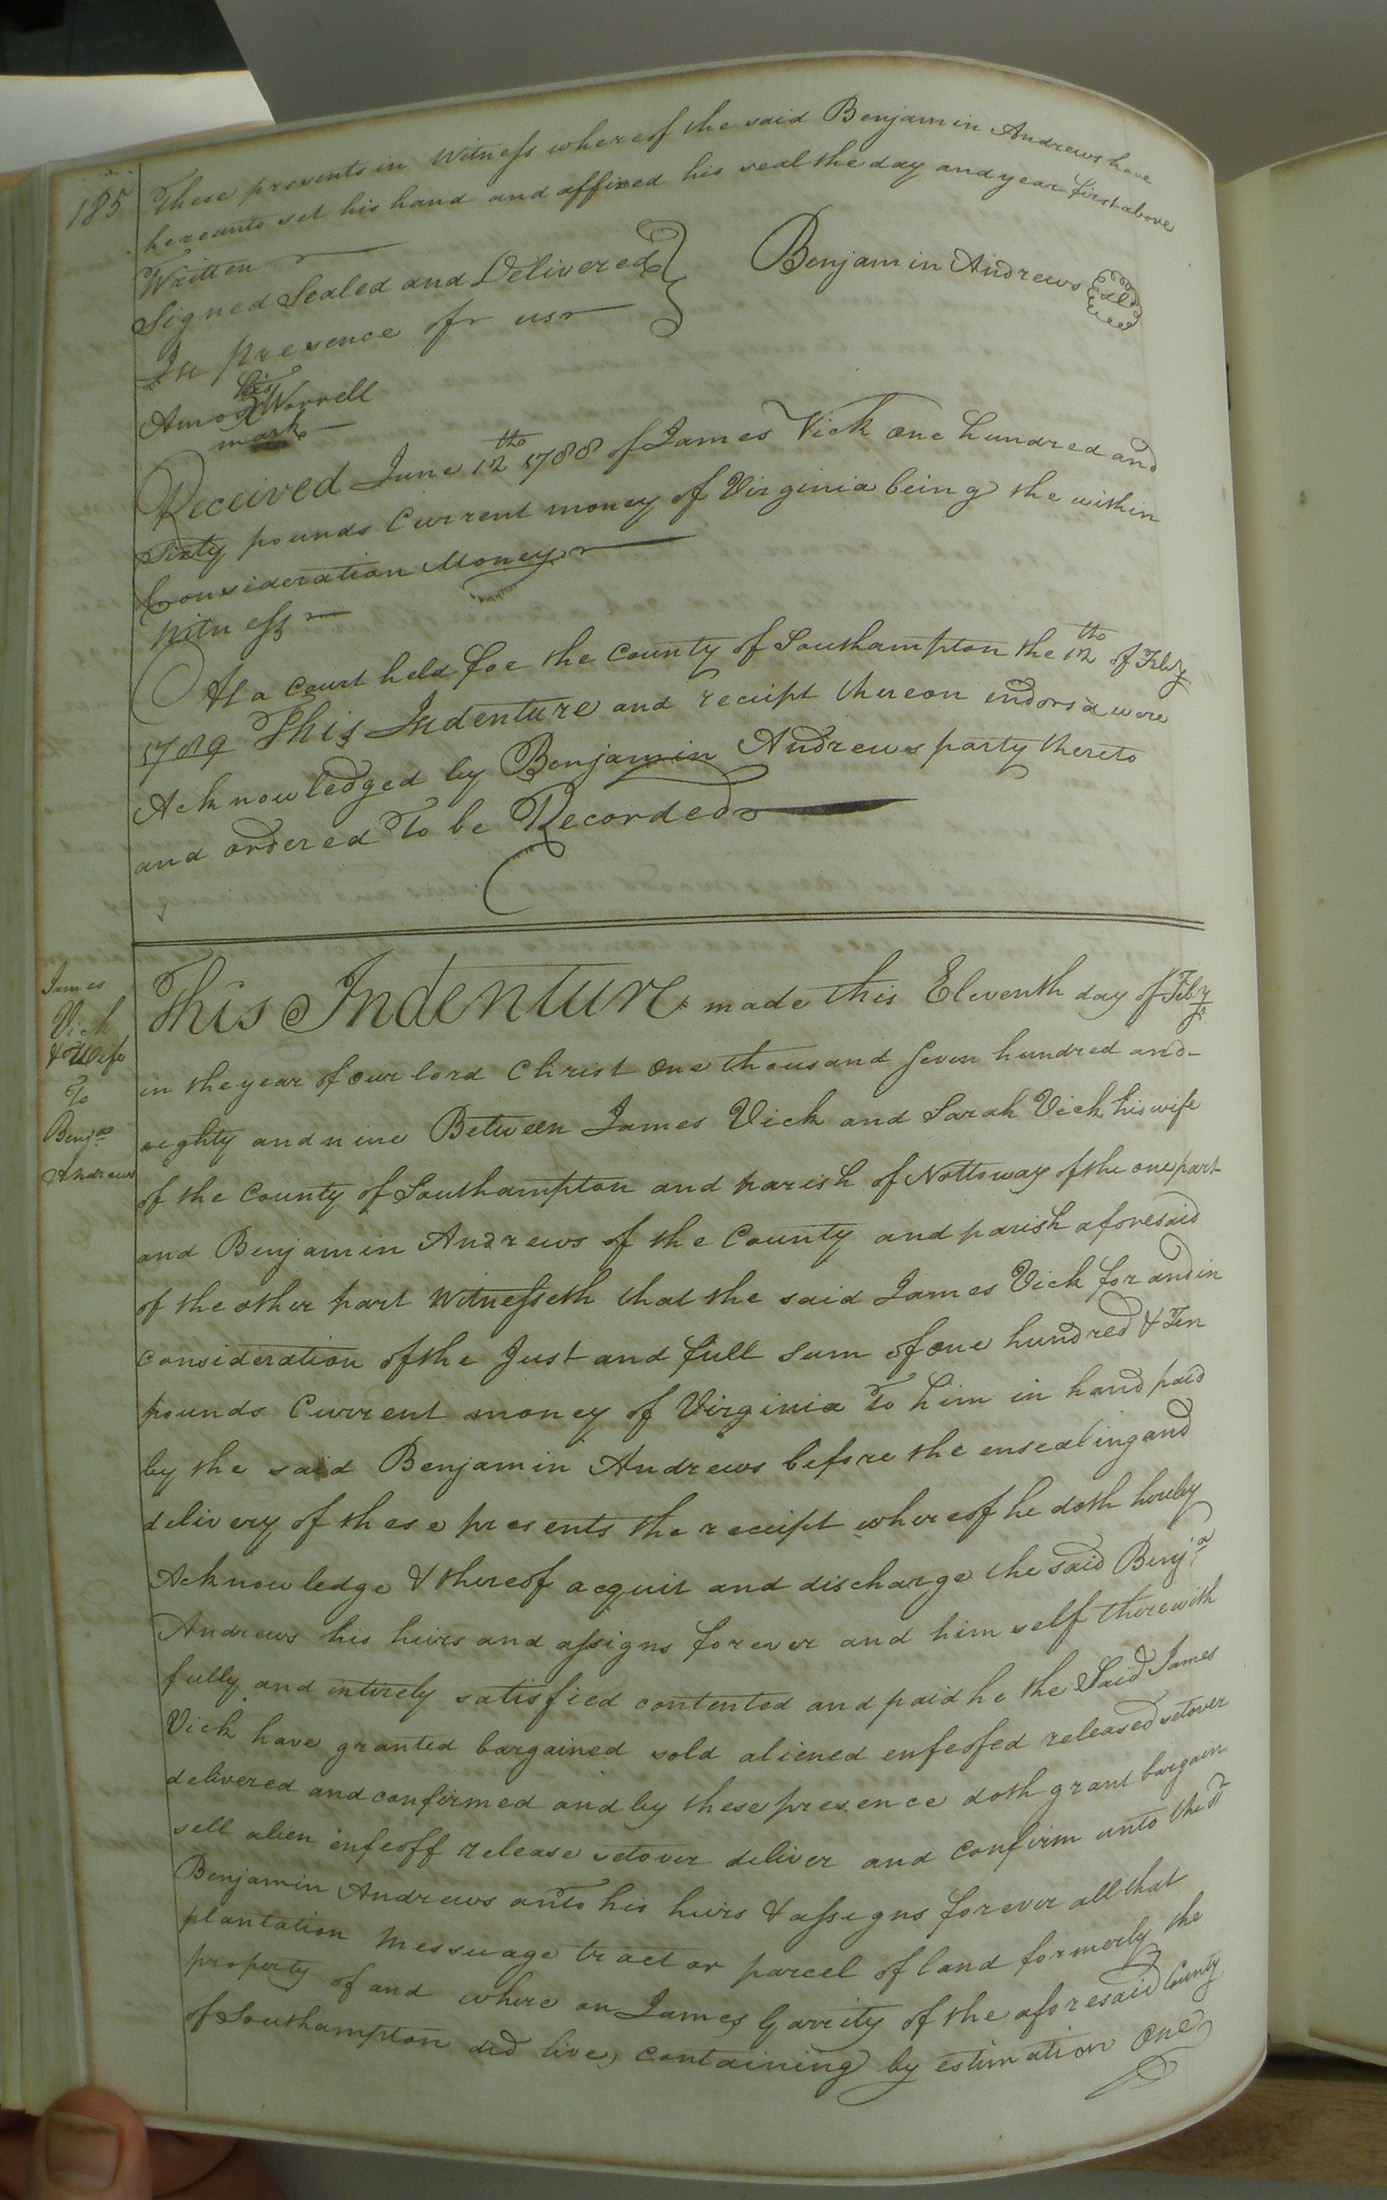 185
These presents in Witness whereof the said Benjamin Andrews have
hereunto set his hand and affixed his seal the day and year first above
Written
Signed Sealed and Delivered
In presence of us
Benjamin Andrews Seal
his
Amos X Worrell
mark
Received June 12th 1788 of James Vick one hundred and
Sixty pounds Current money of Virginia being the within
Consideration Money
Witness
At a Court held for the County of Southampton the 12th of Febry
1789 This Indenture and receipt thereon endorsd were
Acknowledged by Benjamin Andrews party thereto
and ordered To be Recorded
James
Vick
& Wife
To
Benja
Andrews
This Indenture made this Eleventh day of Febry
in the year of our lord Christ One thousand Seven hundred and
eighty and nine Between James Vick and Sarah Vick his wife
of the County of Southampton and parish of Nottoway of the one part
and Benjamin Andrews of the County and parish aforesaid
of the other part Witnesseth that the said James Vick for and in
consideration of the Just and full sum of one hundred & Ten
pounds Current money of Virginia To him in hand paid
by the said Benjamin Andrews before the ensealing and
delivery of these presents the receipt whereof he doth hereby
Acknowledge & thereof acquit and discharge the said Benja
Andrews his heirs and assigns forever and him self therewith
fully and intirely satisfied contented and paid he the Said James
Vick have granted bargained sold aliened enfeofed released setover
delivered and confirmed and by these presence doth grant bargain
sell alien infeoff release setover deliver and confirm unto the sd
Benjamin Andrews anto his heirs & assigns forever all that
plantation Messuage tract or parcel of land formerly the
property of and where on James Garrity of the aforesaid County
of Southampton did live, containing by estimation One